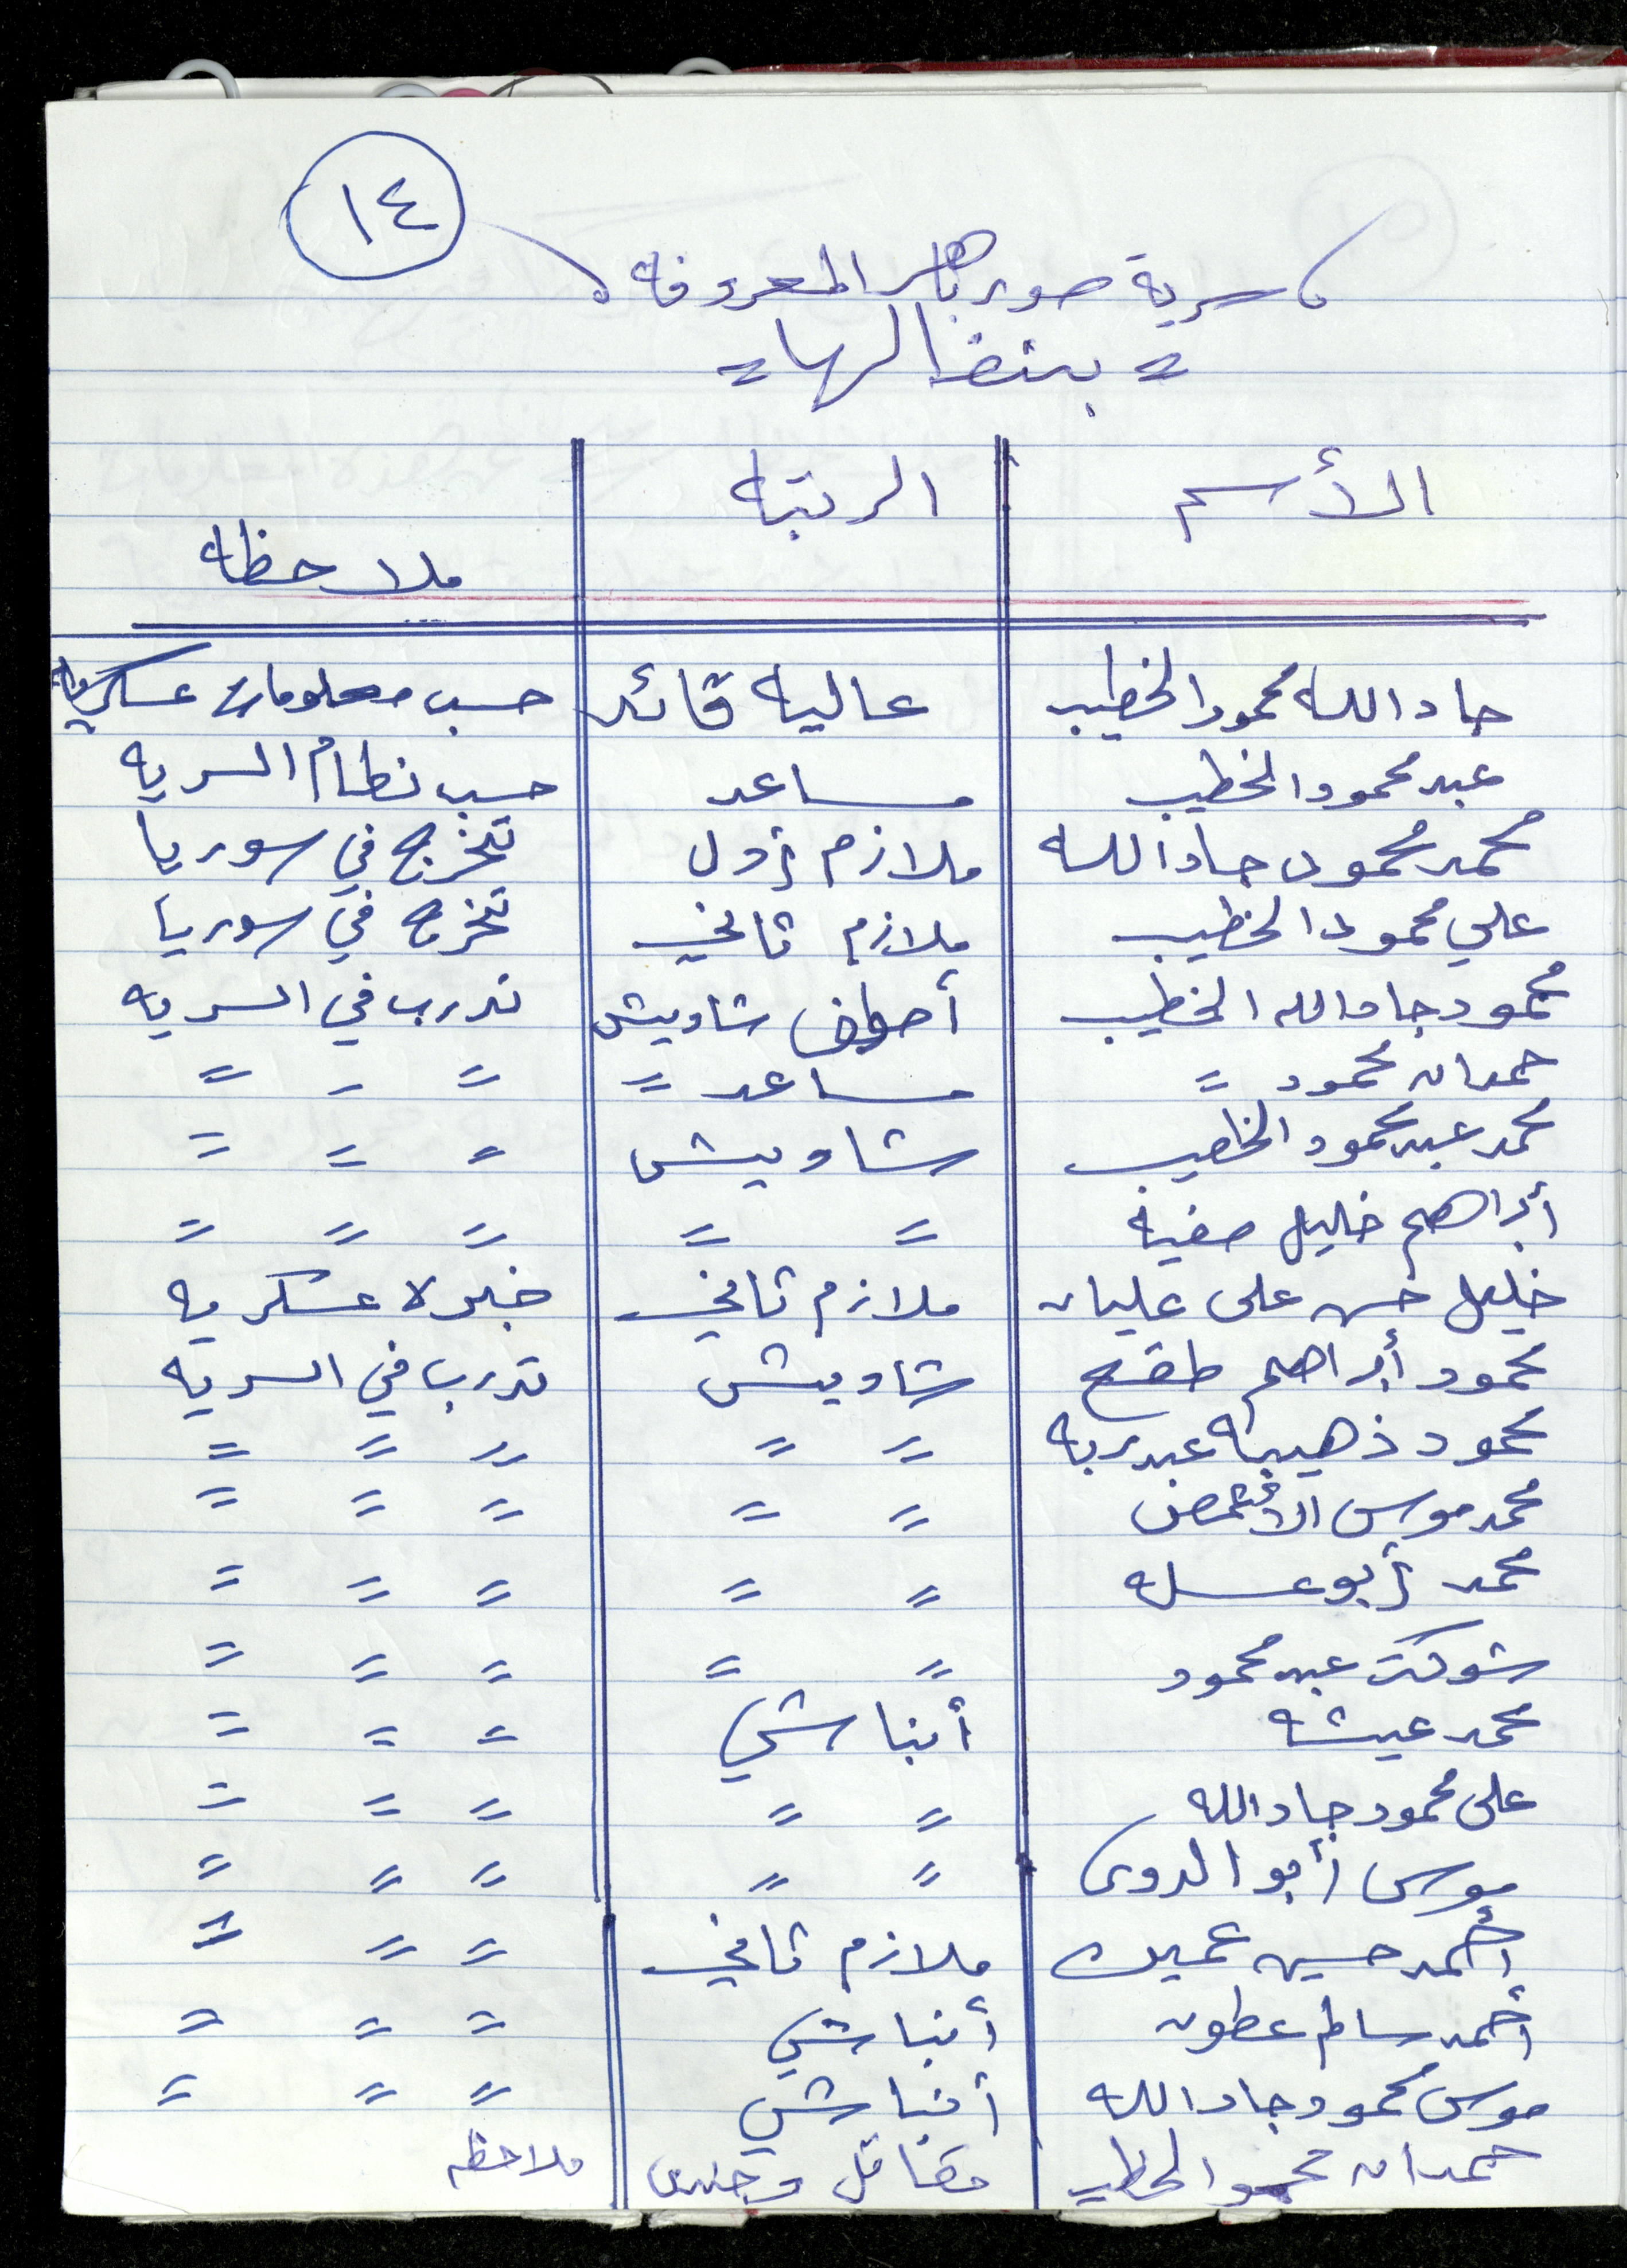 ١٤
سرية صور باهر المعروفه
= بنضالها =
الأسم الرتبه ملاحظه
جاد الله محمود الخطيب عاليه قائد حسب معلومات عسكريه
عبد محمود الخطيب مساعد حسب نظام السريه
محمد محمود جاد الله ملازم أول تخرج في سوريا
علي محمود الخطيب ملازم ثاني تخرج في سوريا
محمود جاد الله الخطيب شاويش تدرب في السريه
حمدان محمود = مساعد = = - =
محمد عبد محمود الخطيب شاويش = = =
أبراهيم خليل صفيه = = = = =
خليل حسن على عليان ملازم ثاني خبره عسكريه
محمود أبراهيم طقح شاويش تدرب في السريه
محمود ذهيبه عبد ربه = = = = =
محمد موسى = = = = =
محمد أبو عسله = = = = =
شوكت عبد محمود = = = = =
محمد عيشه أنباشي = = =
على محمود جاد الله = = = = =
موسى أبو الدوى = = = = =
أحمد حسين عميره ملازم ثاني = = =
أحمد سالم عطون أنباشي = = =
موسى محمود جاد الله أنباشي = = =
حمدان محمود الخطيب مقاتل وجندى ملاحظه